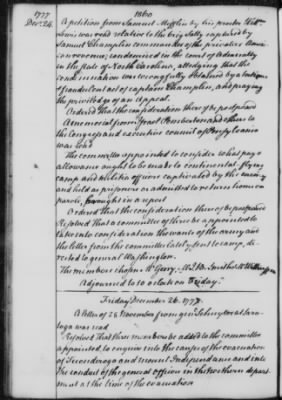 1777
Dec. 24.
1860
A petition from Samuel Mifflin by his proctor Wm.
Lewis was read relative to the brig Sally captured by
Samuel Champlin commander of the privateer
condemned in the court of Admiralty
in the State of North Carolina, alledging that the
condemnation was wrongfully obtained by a
fraudulent act of captain Champlin, and praying
the priviledge of an appeal.
Ordered that the consideration thereof be postponed
A memorial from Israel Pemberton and others to
the Congress and executive council of Pensylvania
was read
The committee appointed to consider what pay &
allowance ought to be made to continental, flying
camp and militia officers captivated by the enemy
and held as prisoners or admitted to return home on
parole, brought in a report
Ordered that the consideration thereof be postponed
Resolved That a committee of three be appointed to
take into consideration the wants of the army and
the letter from the committee lately sent to camp, di-
rected to general Washington.
The members chosen Mr Gerry, Mr J B Smith & Mr Wellington
Adjourned to 10 o'clock on Friday.
Friday December 26. 1777
A letter of 28 November from gen. Schuyler at Sara-
toga was read
Resolved That three members be added to the committee
appointed, to enquire into the causes of the evacuation
of Ticonderoga and mount Independance and into
the conduct of the general officers in the northern depart-
ment at the time of the evacuation